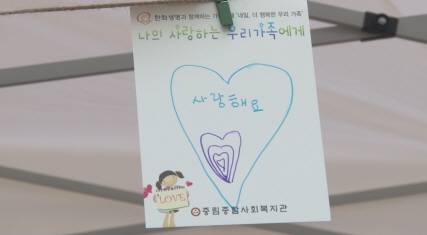 한화생명과 함께하는 가 "내일, 더 행복한 우리 가족"
나의 사랑하는 우리가족에게
사랑해요
LOVE
중림종합사회복지관